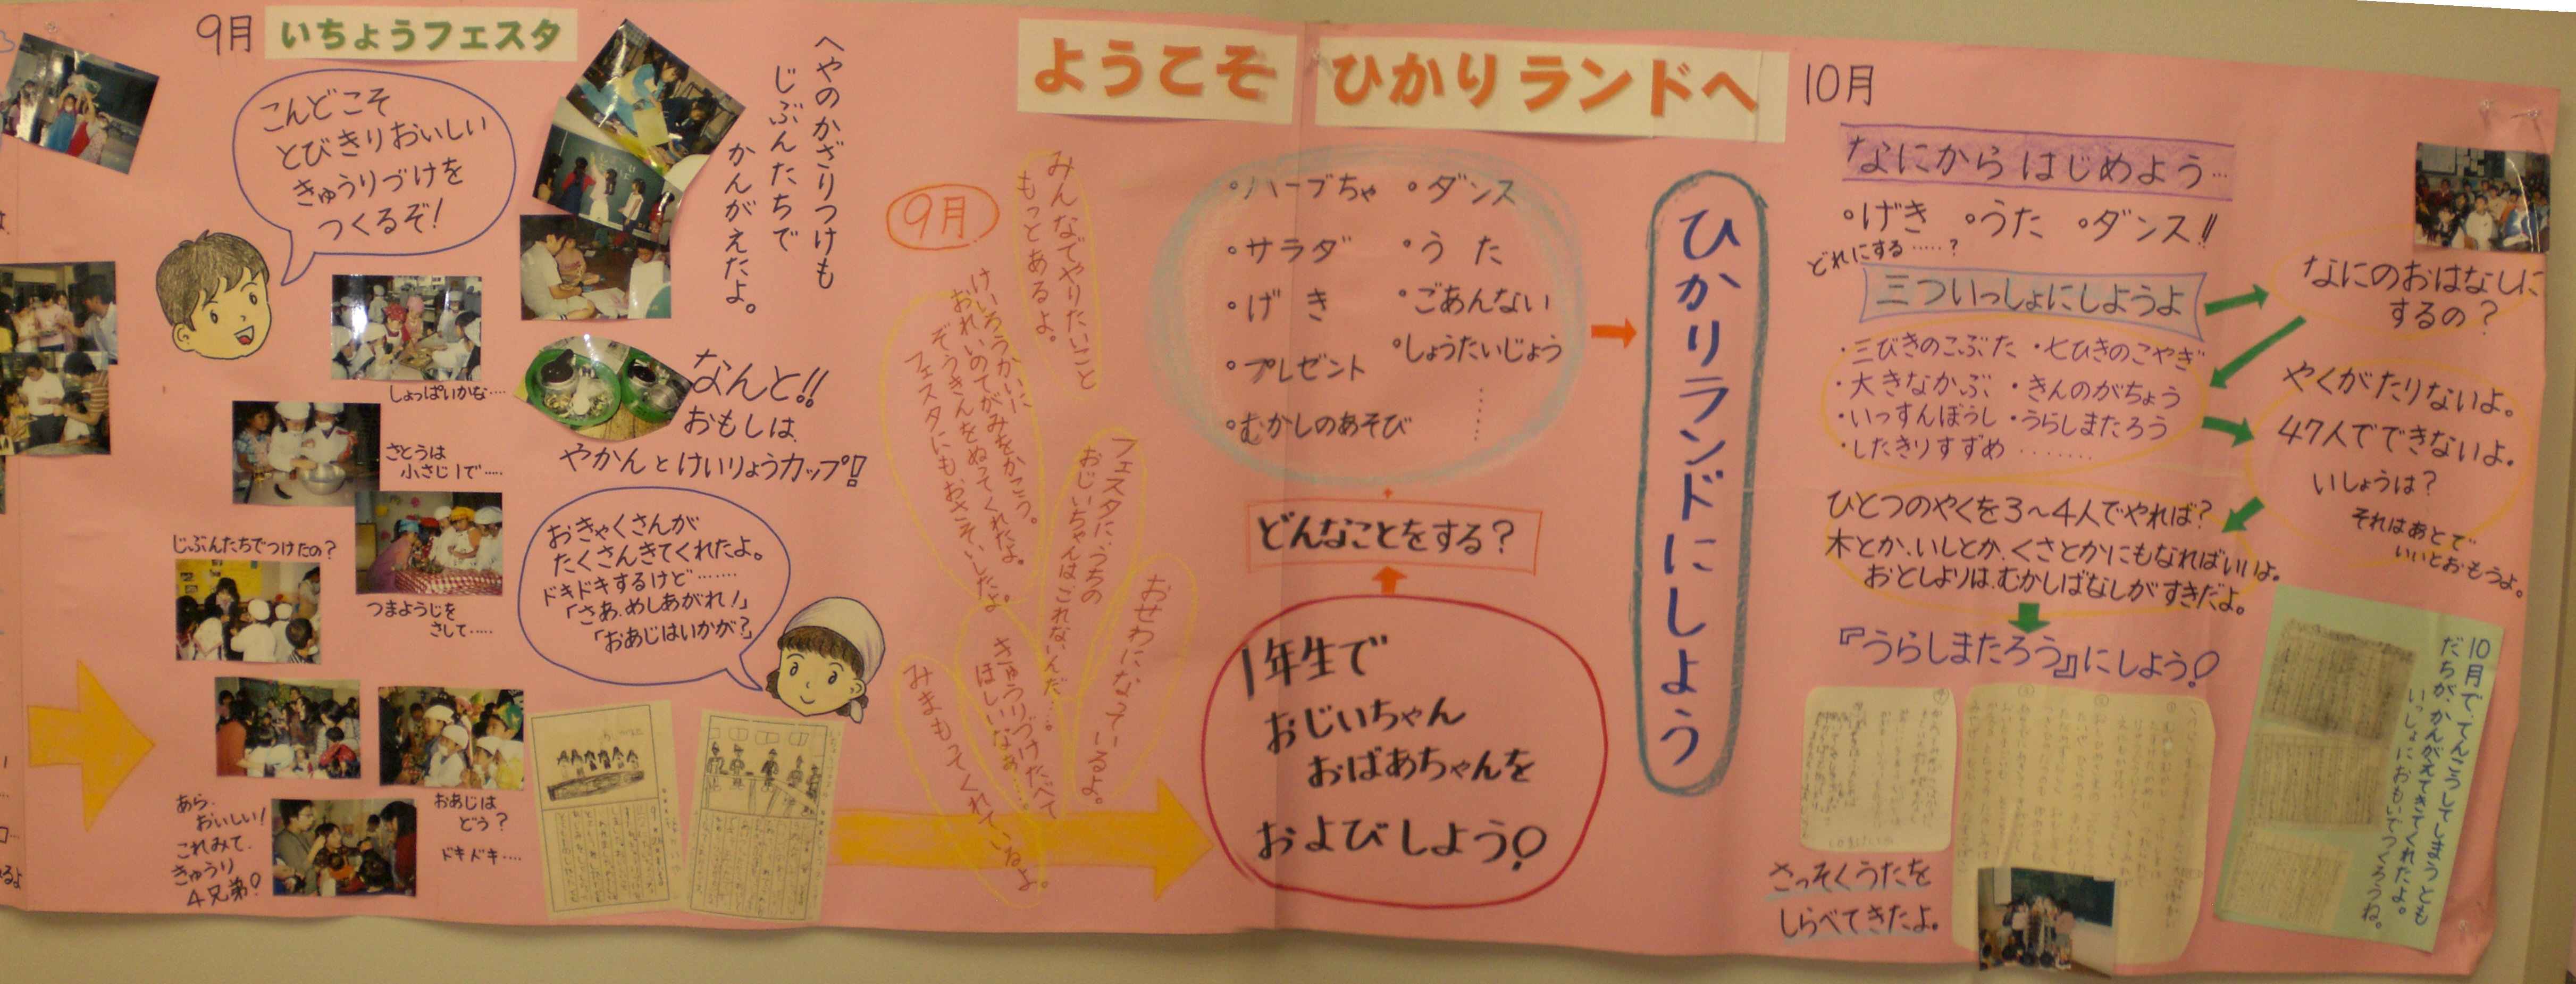 9月
いちょうフェスタ
こんどこそ
とびきりおいしい
きゅうりづけを
つくるぞ!
へやのかざりつけも
じぶんたちで
かんがえたよ。
しょっぱいかな‥‥
さとうは
小さじ1で‥‥
なんと!!
おもしは、
やかんとけいりょうカップ!
じぶんたちでつけたの?
つまようじを
さして‥‥
おきゃくさんが
たくさんきてくれたよ。
ドキドキするけど‥‥‥
「さあ、めしあがれ!」
「おあじはいかが?」
あら、
おいしい!
これみて、
きゅうり
4兄弟!
おあじは
どう?
ドキドキ‥‥
ようこそ ひかりランドへ
9月
みんなでやりたいこと
もっとあるよ。
けいろうかいに
おれいのてがみをかこう。
ぞうきんをぬってくれたよ。
フェスタにもおさそいしたよ。
フェスタに、うちの
おじいちゃんはこれないんだ‥‥
きゅうりづけたべて
ほしいなあ‥‥
おせわになっているよ。
みまもってくれているよ。
1年生で
おじいちゃん
おばあちゃんを
およびしよう!
どんなことをする?
・ハーブちゃ ・ダンス
・サラダ ・うた
・げき ・ごあんない
・プレゼント ・しょうたいじょう
・むかしのあそび
ひかりランドにしよう
10月
なにから はじめよう…
・げき ・うた ・ダンス!!
どれにする‥‥‥?
三ついっしょにしようよ
なにのおはなしに
するの?
・三びきのこぶた ・七ひきのこやぎ
・大きなかぶ ・きんのがちょう
・いっすんぼうし ・うらしまたろう
・したきりすずめ ‥‥‥‥
やくがたりないよ。
47人でできないよ。
いしょうは?
それはあとで
いいとおもうよ。
ひとつのやくを3〜4人でやれば?
木とか、いしとか、くさとかにもなればいいよ。
おとしよりは、むかしばなしがすきだよ。
『うらしまたろう』にしよう!
さっそくうたを
しらべてきたよ。
10月で、てんこうしてしまうとも
だちが、かんがえてきてくれたよ。
いっしょにおもいでつくろうね。